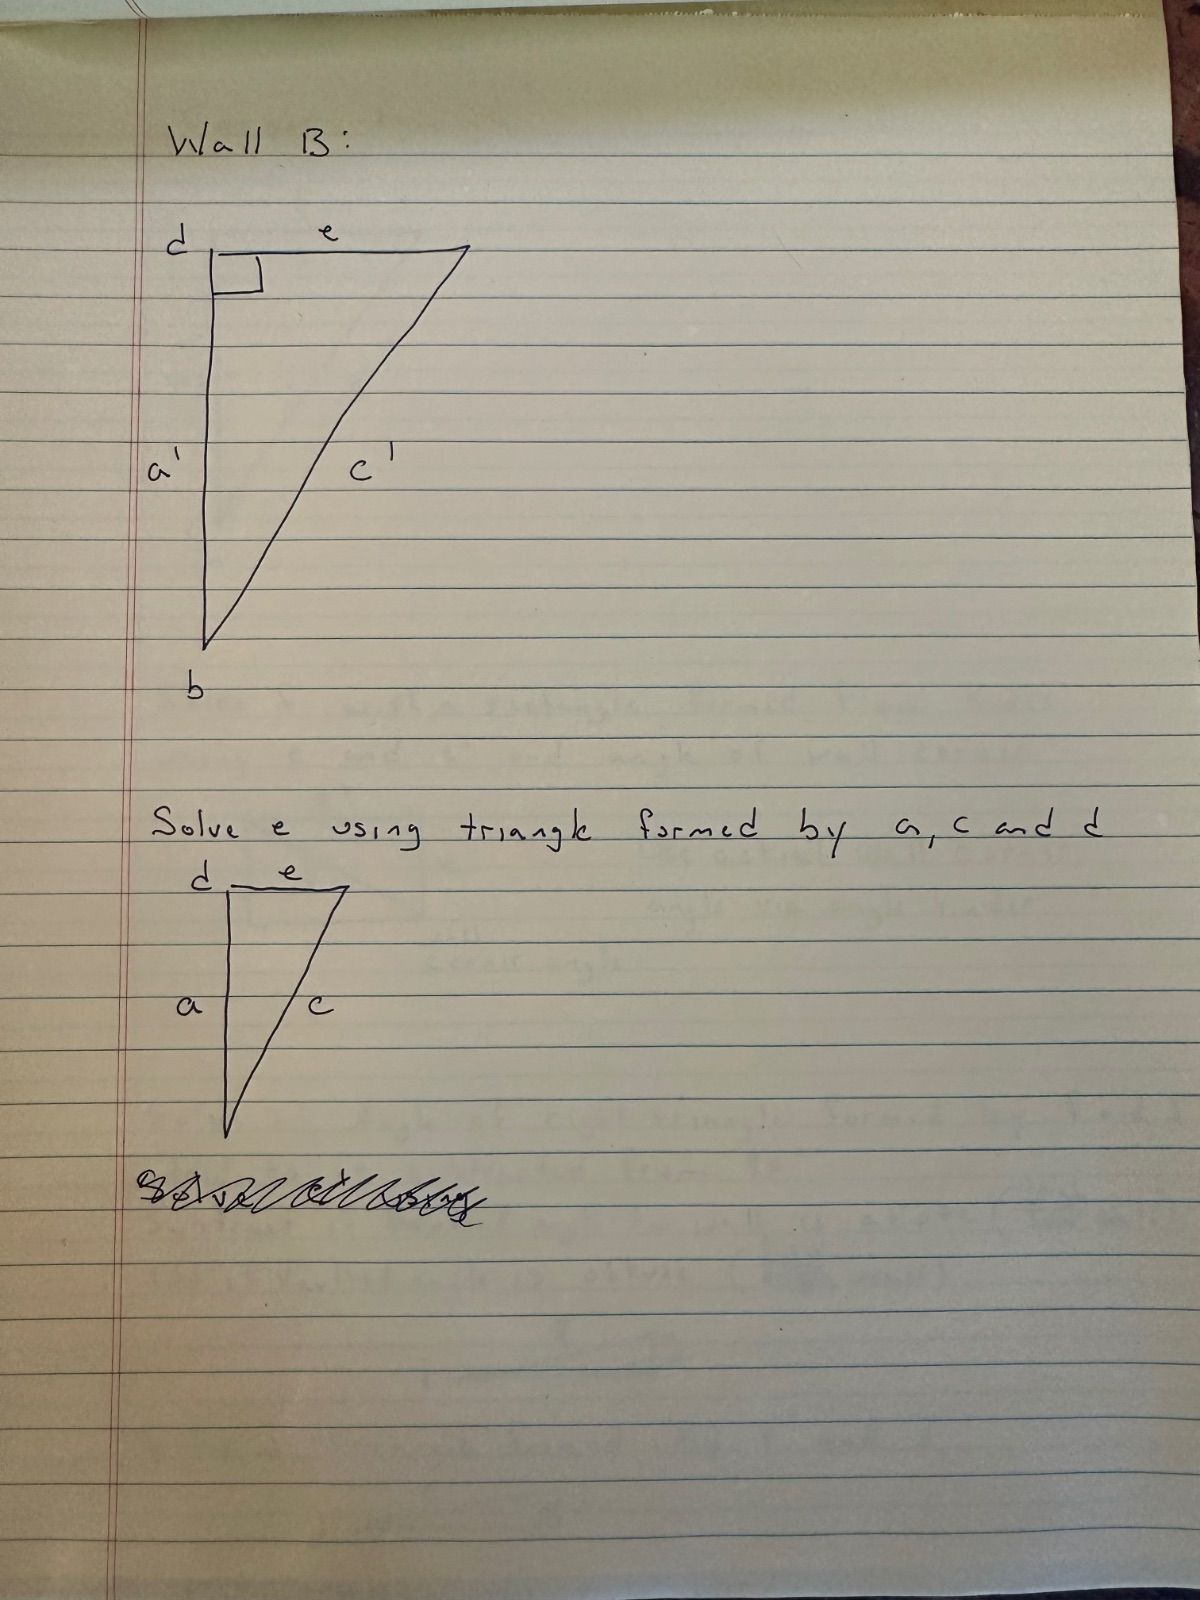 Wall B:
d e
a' c'
b
Solve e using triangle formed by a, c and d
d e
a c